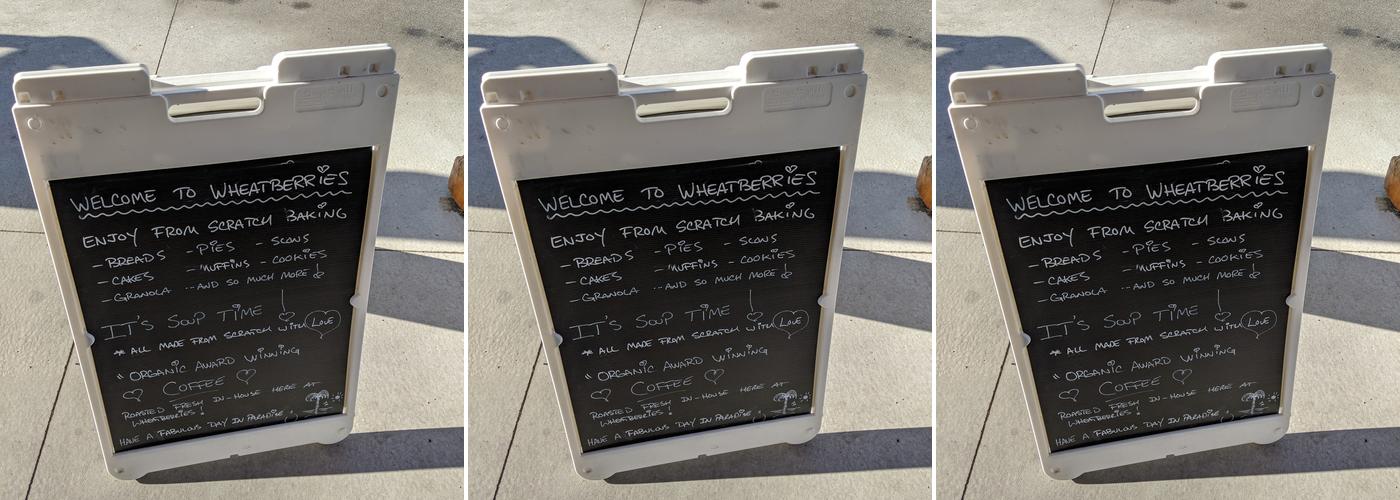 WELCOME TO WHEATBERRIES
ENJOY FROM SCRATCH BAKING
- BREADS - PIES - SCONS
- CAKES - MUFFINS - COOKIES
- GRANOLA ...AND SO MUCH MORE!
IT'S SOUP TIME
* ALL MADE FROM SCRATCH WITH LOVE
" ORGANIC AWARD WINNING
COFFEE
ROASTED FRESH IN-HOUSE HERE AT
WHEATBERRIES!
HAVE A FABULOUS DAY IN PARADISE
WELCOME TO WHEATBERRIES
ENJOY FROM SCRATCH BAKING
- BREADS - PIES - SCONS
- CAKES - MUFFINS - COOKIES
- GRANOLA ...AND SO MUCH MORE!
IT'S SOUP TIME
* ALL MADE FROM SCRATCH WITH LOVE
" ORGANIC AWARD WINNING
COFFEE
ROASTED FRESH IN-HOUSE HERE AT
WHEATBERRIES!
HAVE A FABULOUS DAY IN PARADISE
WELCOME TO WHEATBERRIES
ENJOY FROM SCRATCH BAKING
- BREADS - PIES - SCONS
- CAKES - MUFFINS - COOKIES
- GRANOLA ...AND SO MUCH MORE!
IT'S SOUP TIME
* ALL MADE FROM SCRATCH WITH LOVE
" ORGANIC AWARD WINNING
COFFEE
ROASTED FRESH IN-HOUSE HERE AT
WHEATBERRIES!
HAVE A FABULOUS DAY IN PARADISE